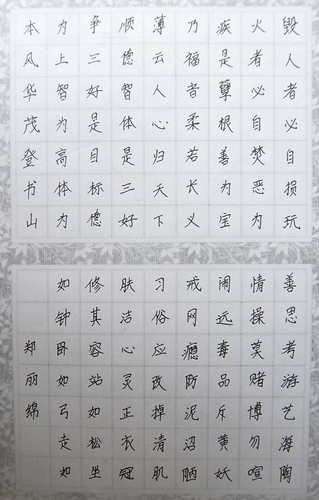 毁人者必自损玩
火者必自焚恶为
疾是孽根善为宝
乃福音柔若长义
薄云人心归天下
顺德智体是三好
争三好是目标德
为上智为高体为
本风华茂登书山
善思考游艺海陶
情操莫赌博勿喧
闹远毒品斥黄妖
戒网瘾防泥沼陋
习俗应改掉清肌
肤洁心灵正衣冠
修其容站如松坐
如钟卧如弓走如
郑丽绵